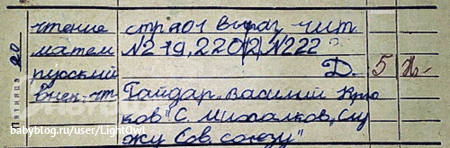 Пятница 20
чтение стр 201 выраз. чит.
матем №219, 220(2), №222
русский Д. 5
внек. чт Гайдар "Василий Крю
ков" С. Михалков "Слу
жу Сов. союзу"
babyblog.ru/user/LightOwl